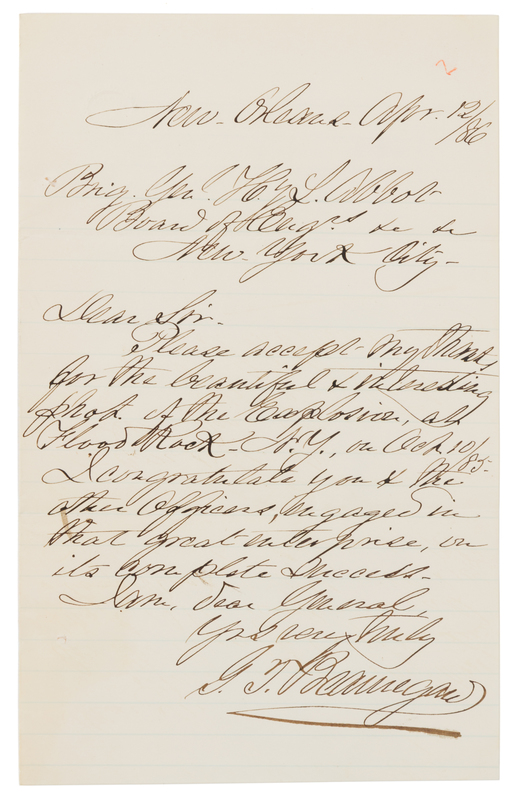 2
New-Orleans-Apr. 12/86
Brig. Genl. Hy L. Abbot
Board of Engrs. &c &c
New-York City-
Dear Sir-
Please accept my thanks,
for the beautiful & interesting
phot. of the Explosion, at
Flood Rock-N.Y., on Oct. 10/85-
I congratulate you & the
other officers, engaged in
that great enterprise, on
its complete success-
I am, dear General,
Yrs very truly
G. T. Beauregard